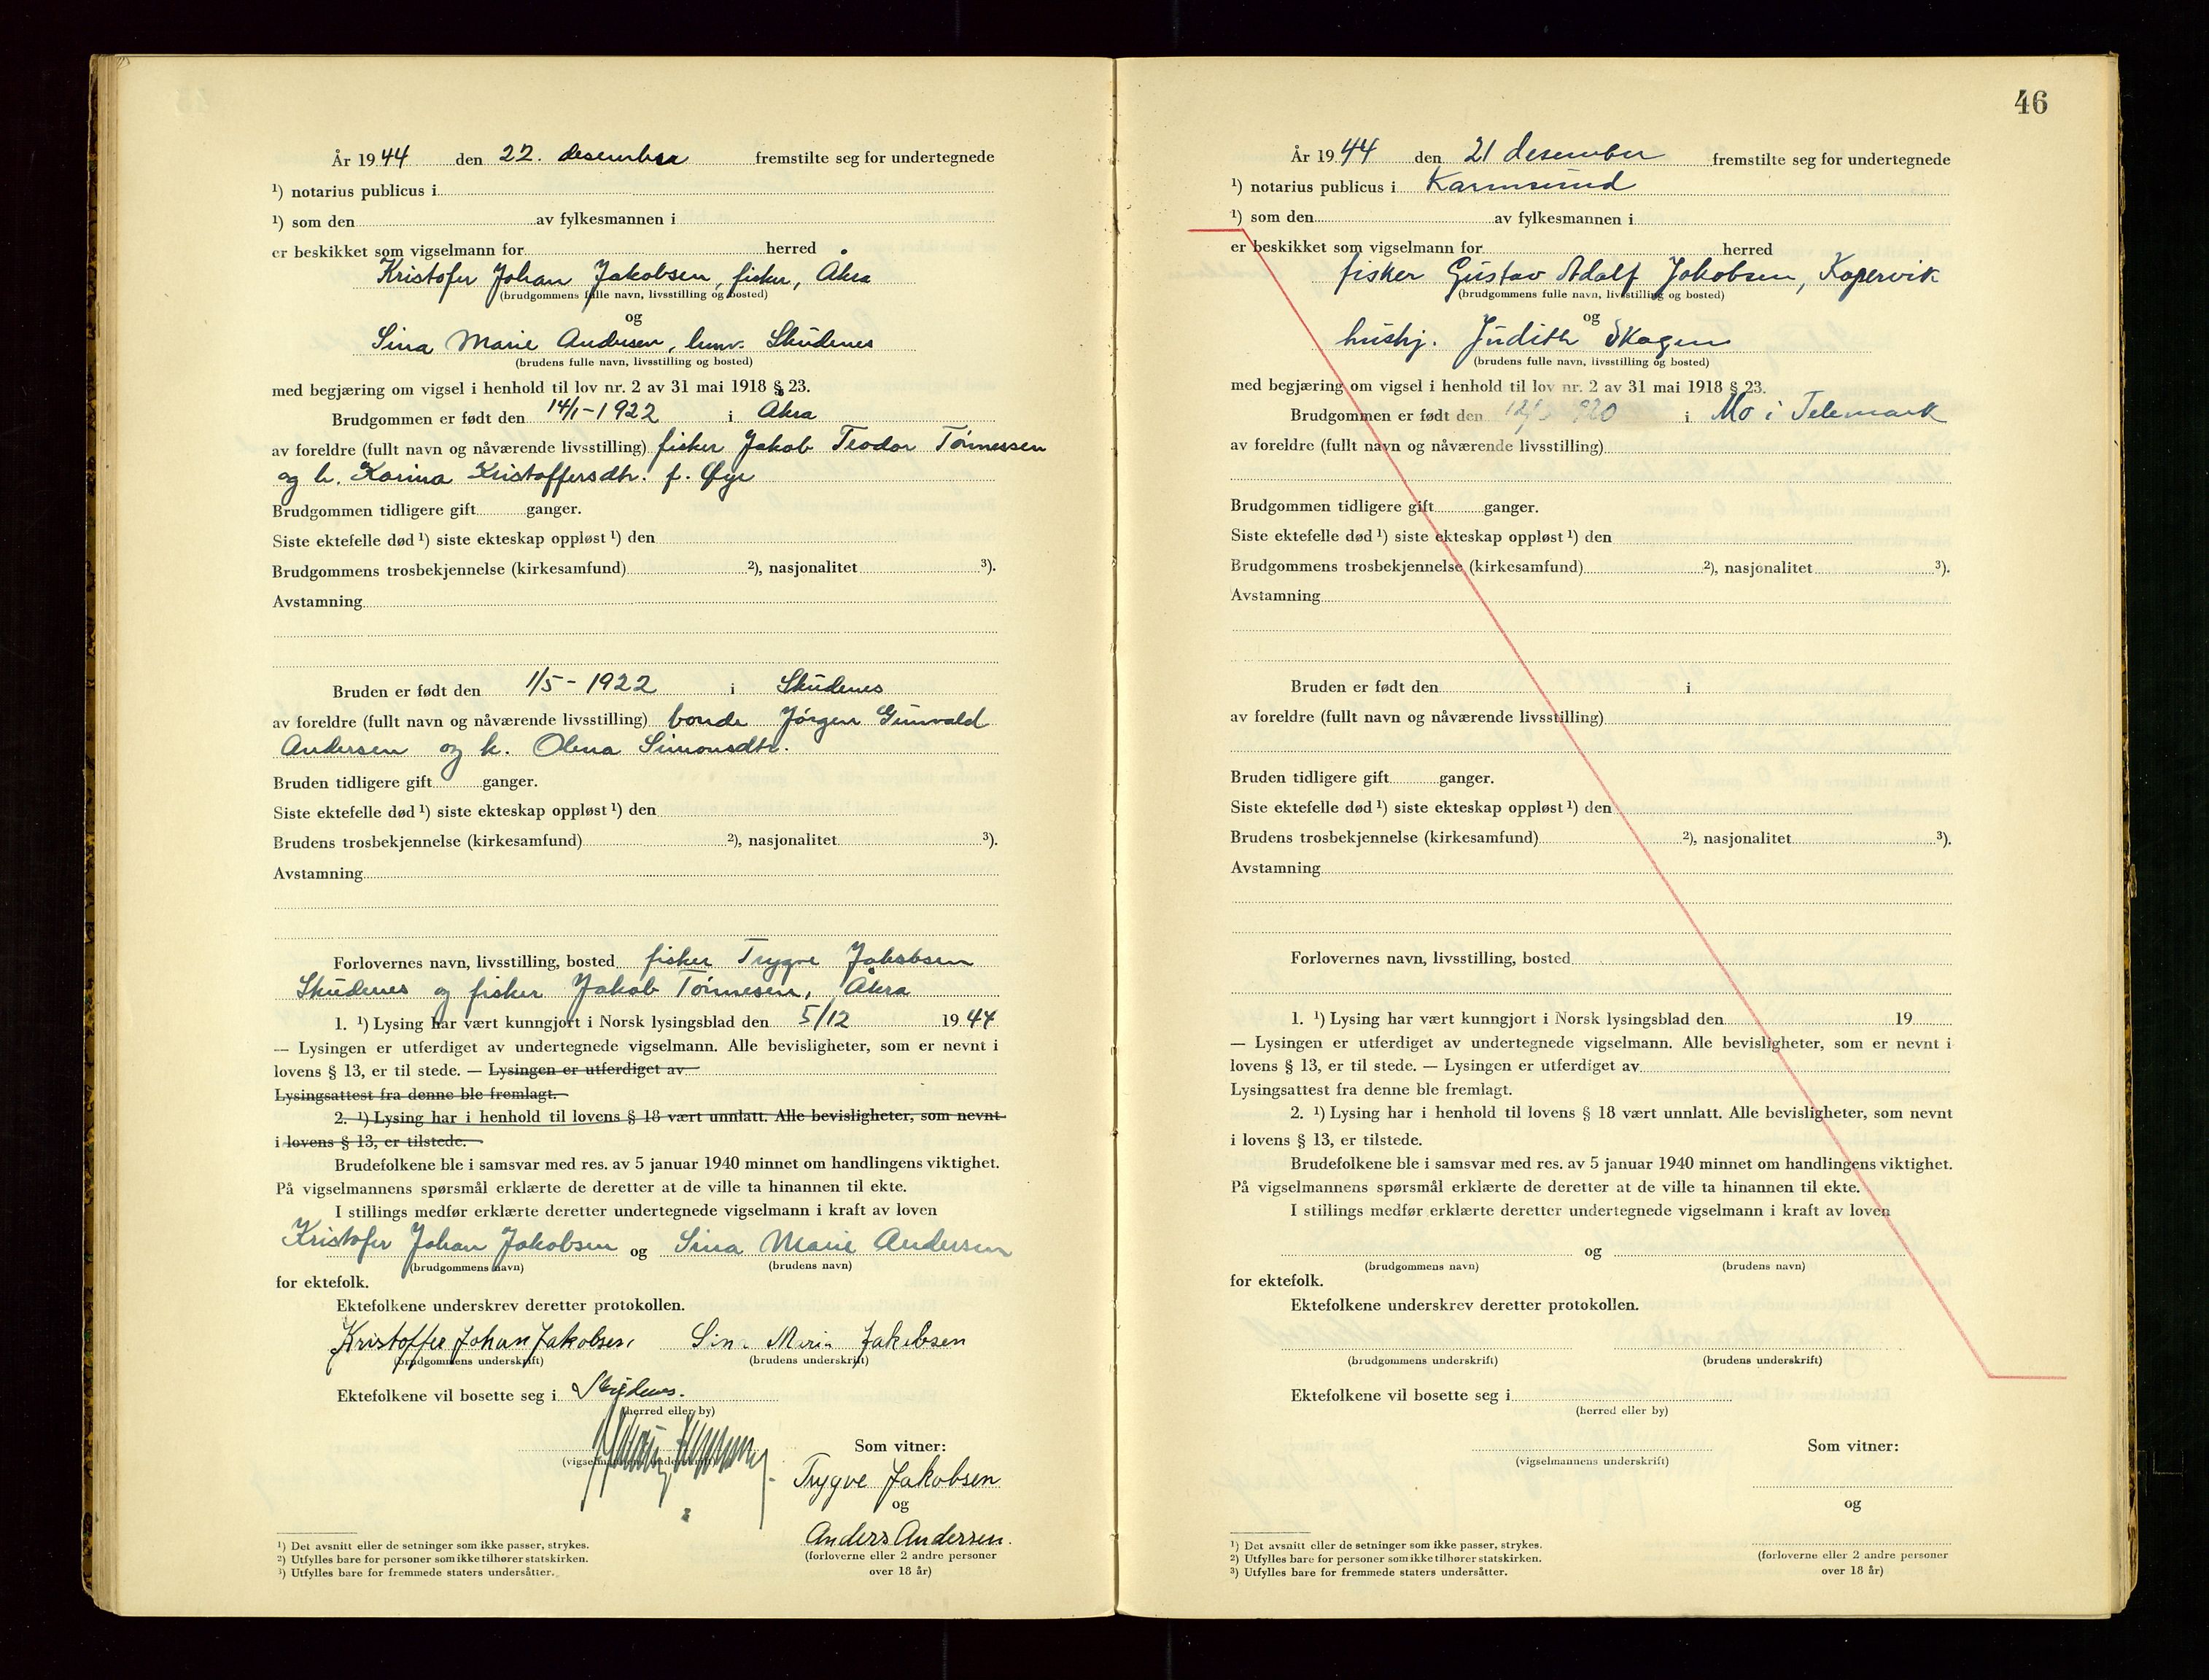 År 1944 den 22. desember fremstilte seg for undertegnede
¹) notarius publicus i
¹) som den av fylkesmannen i
er beskikket som vigselmann for herred
Kristofer Johan Jakobsen, fisker, Åkra
(brudgommens fulle navn, livsstilling og bosted)
og
Sina Marie Andersen, Skudenes
(brudens fulle navn, livsstilling og bosted)
med begjæring om vigsel i henhold til lov nr. 2 av 31 mai 1918 § 23.
Brudgommen er født den 14/1-1922 i Åkra
av foreldre (fullt navn og nåværende livsstilling) fisker Jakob Teodor Tønnessen
og h. Karina Kristoffersdtr. f. Øye
Brudgommen tidligere gift ganger.
Siste ektefelle død ¹) siste ekteskap oppløst ¹) den
Brudgommens trosbekjennelse (kirkesamfund) ²), nasjonalitet ³).
Avstamning
Bruden er født den 1/5-1922 i Skudenes
av foreldre (fullt navn og nåværende livsstilling) bonde Jørgen Gunvald
Andersen og h. Olena Simonsdtr.
Bruden tidligere gift ganger.
Siste ektefelle død ¹) siste ekteskap oppløst ¹) den
Brudens trosbekjennelse (kirkesamfund) ²), nasjonalitet ³).
Avstamning
Forlovernes navn, livsstilling, bosted fisker Trygve Jakobsen
Skudenes og fisker Jakob Tønnesen, Åkra
1. ¹) Lysing har vært kunngjort i Norsk lysingsblad den 5/12 1944
— Lysingen er utferdiget av undertegnede vigselmann. Alle bevisligheter, som er nevnt i
lovens § 13, er til stede. — Lysingen er utferdiget av
Lysingsattest fra denne ble fremlagt.
2. ¹) Lysing har i henhold til lovens § 18 vært unnlatt. Alle bevisligheter, som nevnt
i lovens § 13, er tilstede.
Brudefolkene ble i samsvar med res. av 5 januar 1940 minnet om handlingens viktighet.
På vigselmannens spørsmål erklærte de deretter at de ville ta hinannen til ekte.
I stillings medfør erklærte deretter undertegnede vigselmann i kraft av loven
Kristofer Johan Jakobsen og Sina Marie Andersen
(brudgommens navn) (brudens navn)
for ektefolk.
Ektefolkene underskrev deretter protokollen.
Kristoffer Johan Jakobsen Sina Marie Jakobsen
(brudgommens underskrift) (brudens underskrift)
Ektefolkene vil bosette seg i Skudenes.
(herred eller by)
Som vitner:
(vigselmannens underskrift)
Trygve Jakobsen
og
Anders Andersen.
(forloverne eller 2 andre personer
over 18 år)
¹) Det avsnitt eller de setninger som ikke passer, strykes.
²) Utfylles bare for personer som ikke tilhører statskirken.
³) Utfylles bare for fremmede staters undersåtter.
46
År 1944 den 21 desember fremstilte seg for undertegnede
¹) notarius publicus i Karmsund
¹) som den av fylkesmannen i
er beskikket som vigselmann for herred
fisker Gustav Adolf Jakobsen, Kopervik
(brudgommens fulle navn, livsstilling og bosted)
og
hushj. Judith Skogen
(brudens fulle navn, livsstilling og bosted)
med begjæring om vigsel i henhold til lov nr. 2 av 31 mai 1918 § 23.
Brudgommen er født den i Mo i Telemark
av foreldre (fullt navn og nåværende livsstilling)
Brudgommen tidligere gift ganger.
Siste ektefelle død ¹) siste ekteskap oppløst ¹) den
Brudgommens trosbekjennelse (kirkesamfund) ²), nasjonalitet ³).
Avstamning
Bruden er født den i
av foreldre (fullt navn og nåværende livsstilling)
Bruden tidligere gift ganger.
Siste ektefelle død ¹) siste ekteskap oppløst ¹) den
Brudens trosbekjennelse (kirkesamfund) ²), nasjonalitet ³).
Avstamning
Forlovernes navn, livsstilling, bosted
1. ¹) Lysing har vært kunngjort i Norsk lysingsblad den 19
— Lysingen er utferdiget av undertegnede vigselmann. Alle bevisligheter, som er nevnt i
lovens § 13, er til stede. — Lysingen er utferdiget av
Lysingsattest fra denne ble fremlagt.
2. ¹) Lysing har i henhold til lovens § 18 vært unnlatt. Alle bevisligheter, som nevnt
i lovens § 13, er tilstede.
Brudefolkene ble i samsvar med res. av 5 januar 1940 minnet om handlingens viktighet.
På vigselmannens spørsmål erklærte de deretter at de ville ta hinannen til ekte.
I stillings medfør erklærte deretter undertegnede vigselmann i kraft av loven
og
(brudgommens navn) (brudens navn)
for ektefolk.
Ektefolkene underskrev deretter protokollen.
(brudgommens underskrift) (brudens underskrift)
Ektefolkene vil bosette seg i
(herred eller by)
Som vitner:
(vigselmannens underskrift)
og
(forloverne eller 2 andre personer
over 18 år)
¹) Det avsnitt eller de setninger som ikke passer, strykes.
²) Utfylles bare for personer som ikke tilhører statskirken.
³) Utfylles bare for fremmede staters undersåtter.